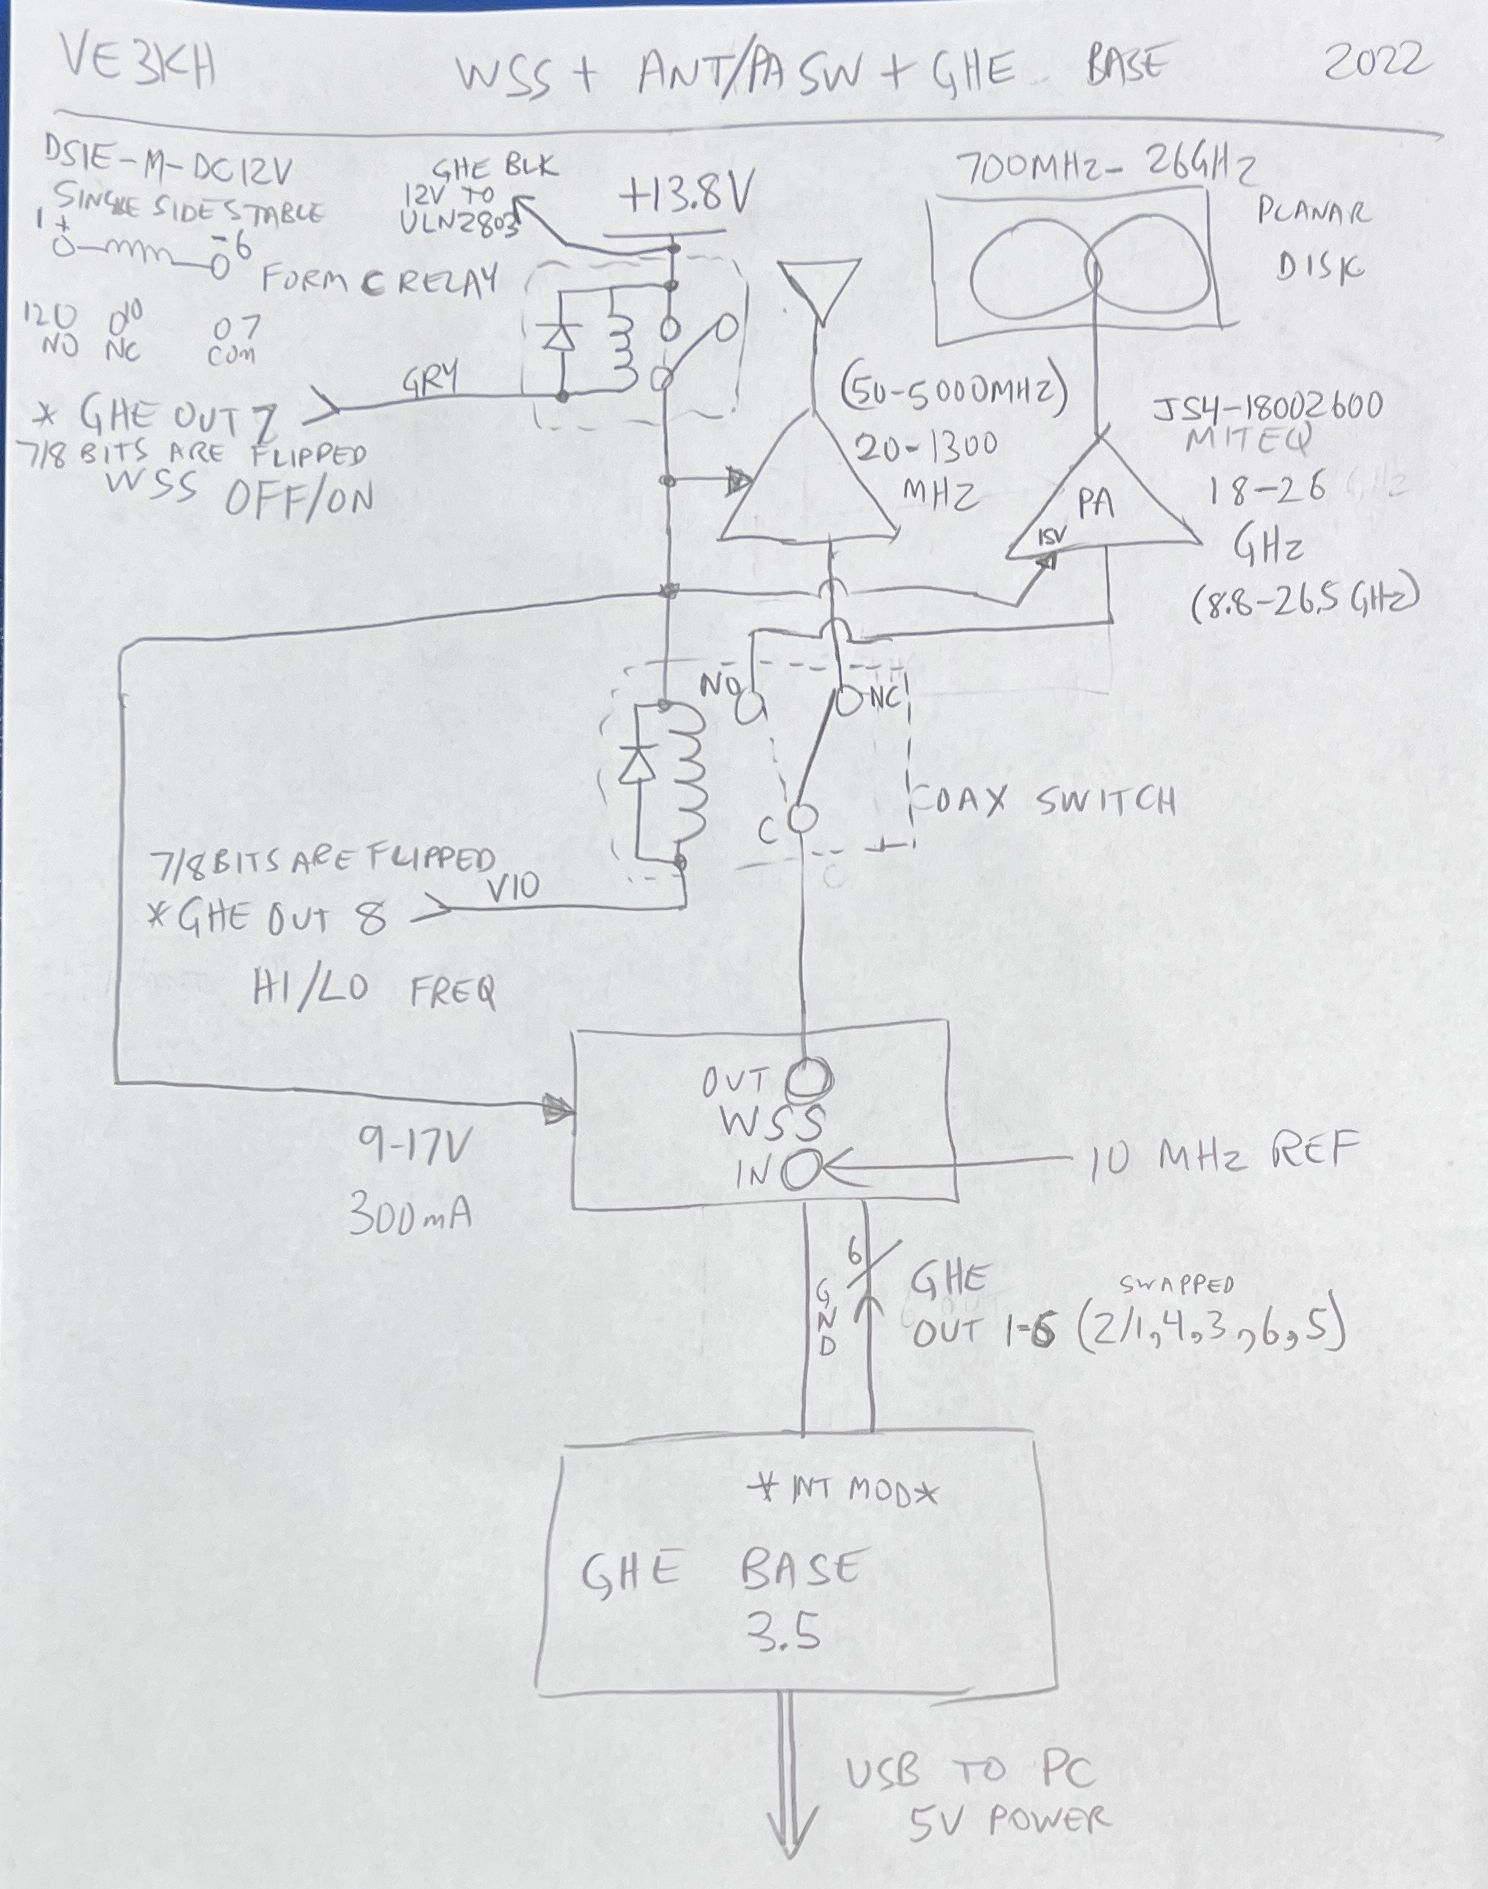 VE3KH WSS + ANT/PA SW + GHE BASE 2022
DS1E-M-DC12V
SINGLE SIDE STABLE
1 + - 6
FORM C RELAY
12 10 7
NO NC COM
GHE BLK
12V TO
ULN2803
+13.8V
700MHz-26GHz
PLANAR
DISK
GRY
* GHE OUT 7
7/8 BITS ARE FLIPPED
WSS OFF/ON
(50-5000MHz)
20-1300
MHz
JS4-18002600
MITEQ
18-26
GHz
(8.8-26.5 GHz)
PA
15V
NO NC
C
COAX SWITCH
7/8 BITS ARE FLIPPED
VIO
*GHE OUT 8
HI/LO FREQ
OUT
WSS
IN
10 MHz REF
9-17V
300mA
6
GND
GHE SWAPPED
OUT 1-6 (2/1,4,3,6,5)
*INT MOD*
GHE BASE
3.5
USB TO PC
5V POWER